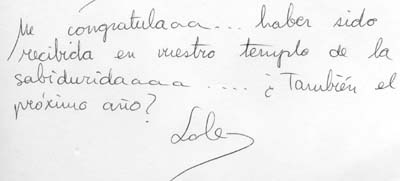 Me congratulaaa... haber sido
recibida en vuestro templo de la
sabiduridaaaa ..... ¿También el
próximo año?
Lola